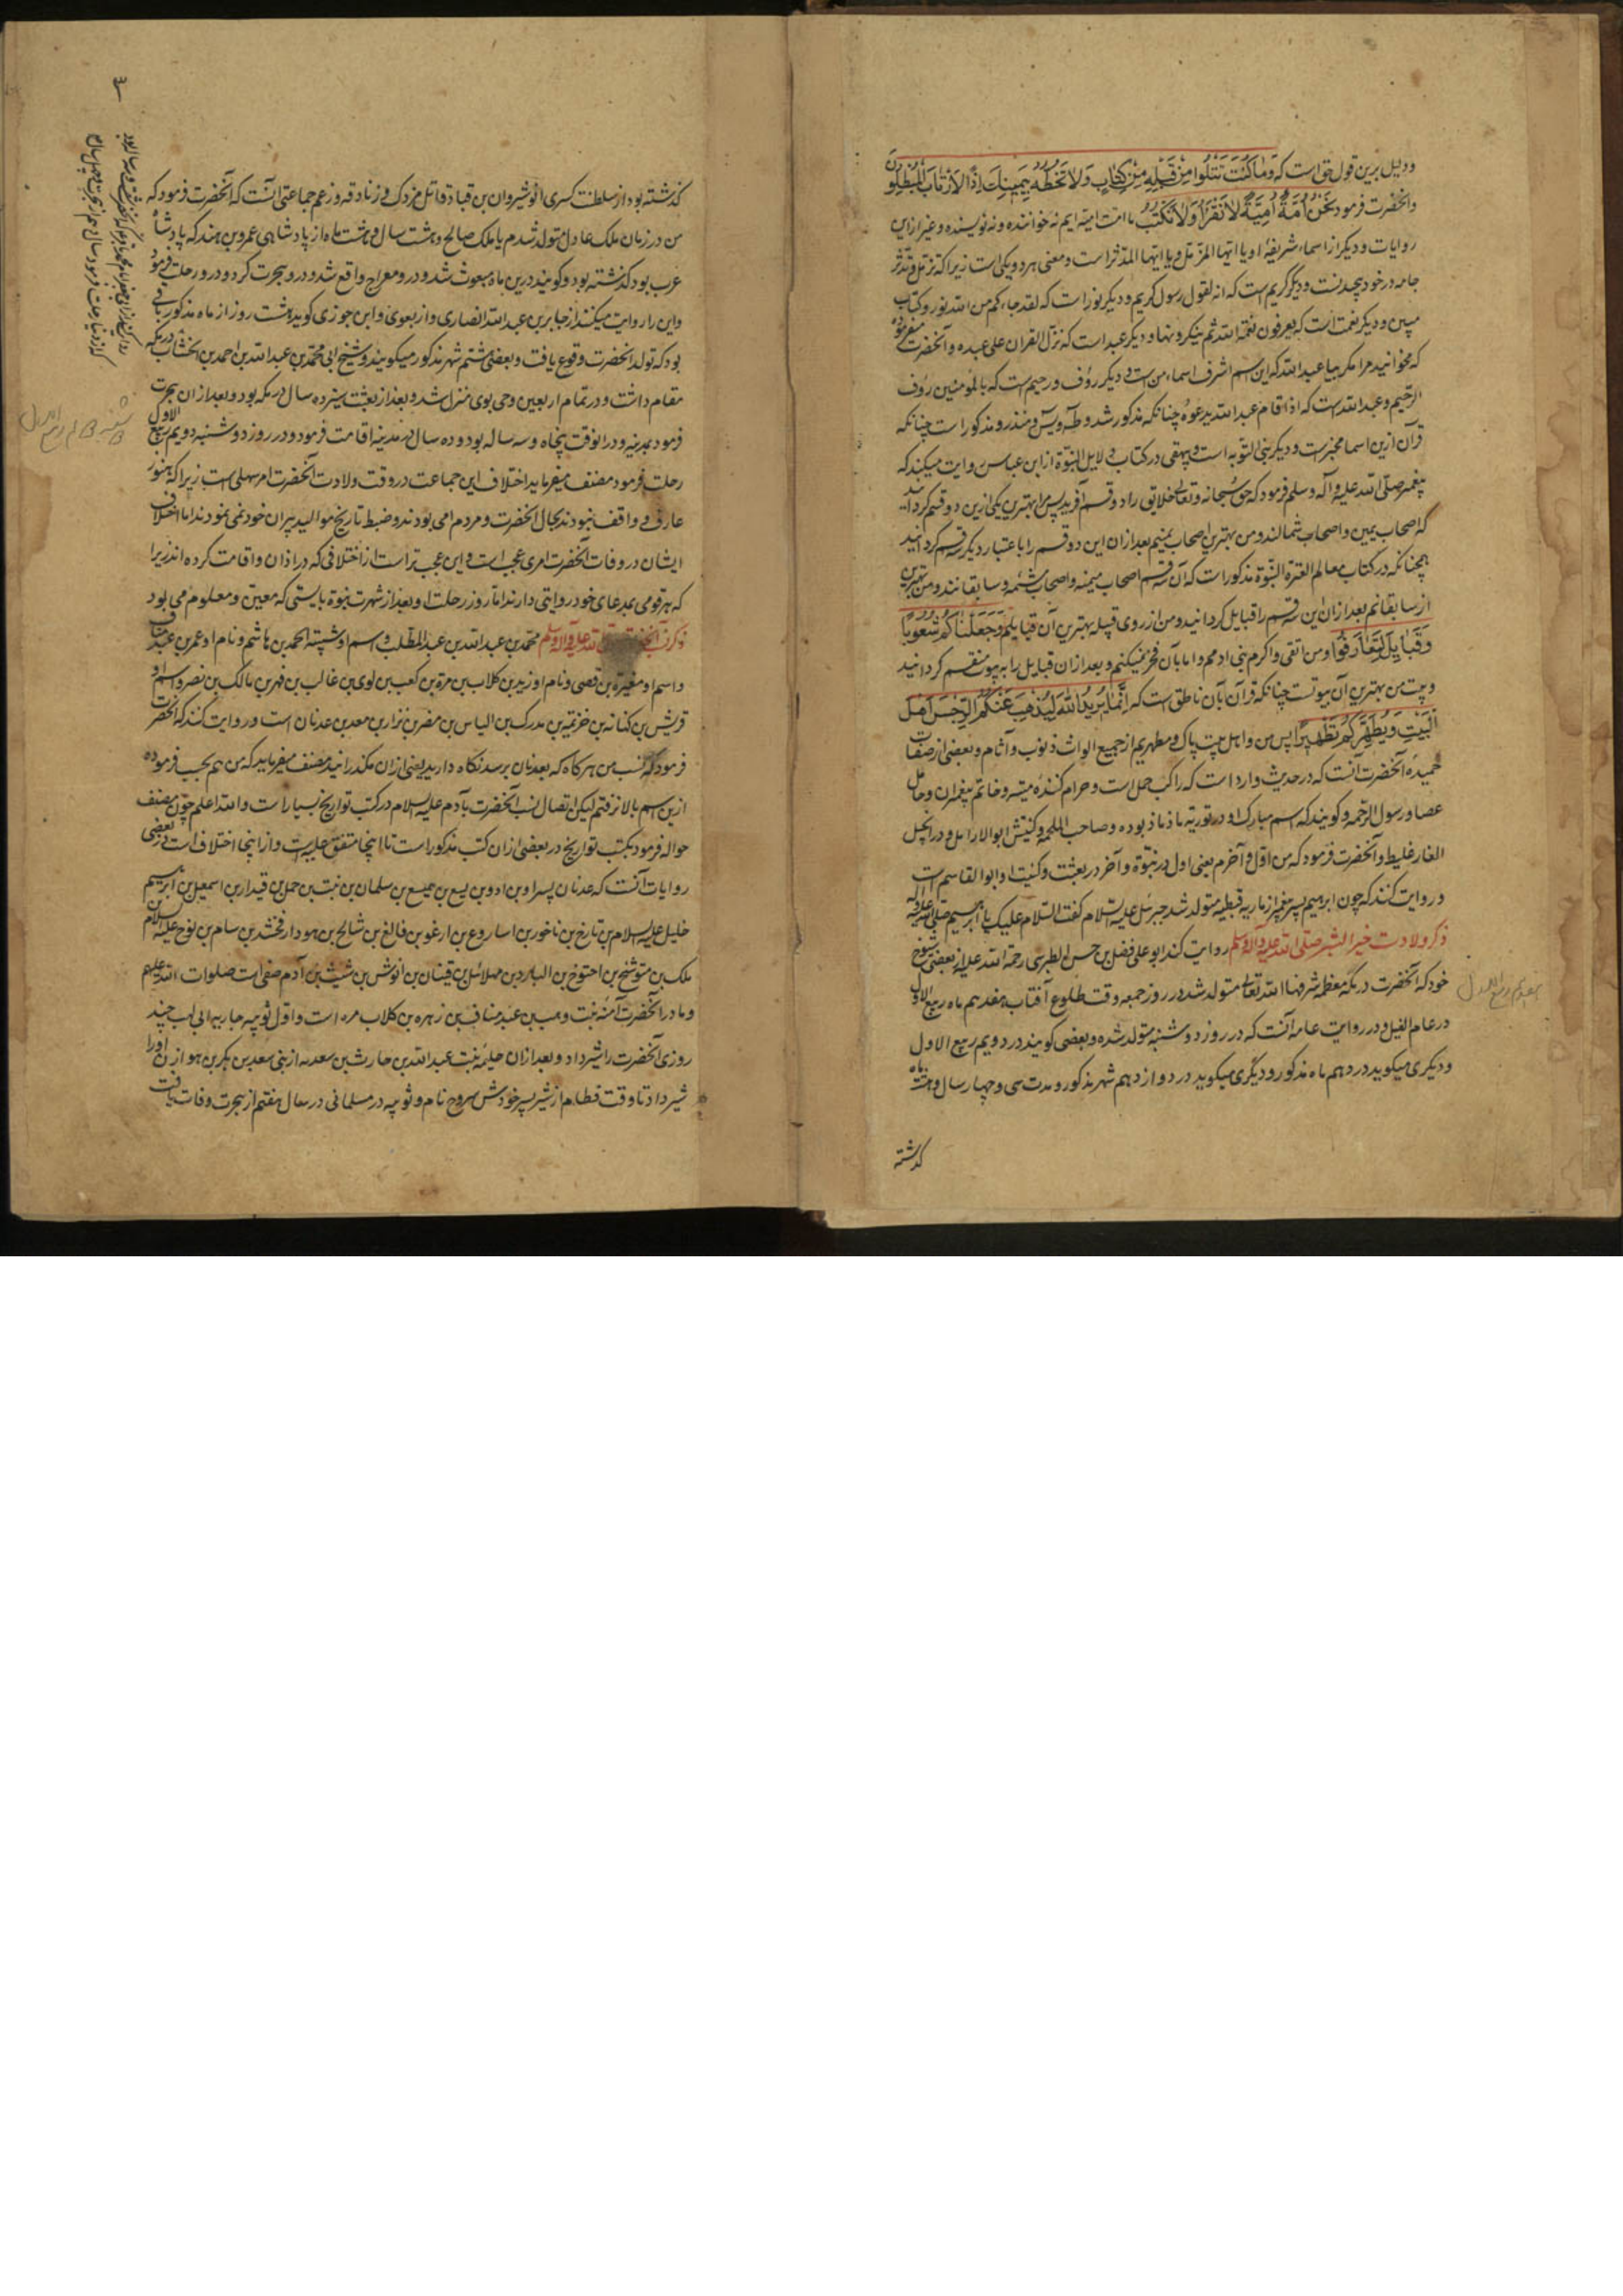 ودلیل برین قول حق است که وَمَا کُنْتَ تَتْلُوا مِنْ قَبْلِهِ مِنْ کِتَابٍ وَلَا تَخُطُّهُ بِیَمِینِکَ اِذًا لَارْتَابَ الْمُبْطِلُونَ
وآنحضرت فرمود نَحْنُ اُمَّةٌ اُمِّیَّةٌ لَا نَقْرَأُ وَلَا نَکْتُبُ ما امت امیه ایم نه خواننده و نه نویسنده و غیر ازین
روایات و دیگر از اسماء شریفهٔ او یا ایها المزمّل و یا ایها المدّثر است و معنی هر دو یکی است زیرا که تزمّل و تدثّر
جامه در خود پیچیدنست و دیگر کریم است که انه لقول رسول کریم و دیگر نور است که لقد جاءکم من الله نور و کتاب
مبین و دیگر نعمت است که یعرفون نعمة الله ثم ینکرونها و دیگر عبد است که نزّل القران علی عبده و آنحضرت میفرموده
که مخوانید مرا مگر بیا عبدالله که این اسم اشرف اسماء من است و دیگر رؤف و رحیم است که بالمؤمنین رؤف
الرحیم و عبدالله است که اذا قام عبدالله یدعوه چنانکه مذکور شد و طه و یس و منذر و مذکور است چنانکه
قرآن ازین اسما مخبر است و دیگر نبی التوبه است و بیهقی در کتاب دلایل النبوّة از ابن عباس روایت میکند که
پیغمبر صلّی الله علیه و آله وسلم فرمود که حق سبحانه و تعالی خلایق را دو قسم آفرید پس مرا بهترین یکی ازین دو قسم گردانید
که اصحاب یمین و اصحاب شمالند و من بهترین اصحاب یمینم بعد ازان این دو قسم را باعتبار دیگر سه قسم گردانید
همچنانکه در کتاب معالم العترة النبوّة مذکور است که آن سه قسم اصحاب میمنه و اصحاب مشئمه و سابقانند و من بهترین
از سابقانم بعد ازان این سه قسم را قبایل گردانید و من از روی قبیله بهترین آن قبایلم وَجَعَلْنَاکُمْ شُعُوبًا
وَقَبَایِلَ لِتَعَارَفُوا و من اتقی و اکرم بنی ادمم و اما بآن فخر نمیکنم و بعد ازان قبایل را به بیوت منقسم گردانید
و بیت من بهترین آن بیوتست چنانکه قرآن بآن ناطق است که اِنَّمَا یُرِیدُ اللّٰهُ لِیُذْهِبَ عَنْکُمُ الرِّجْسَ اَهْلَ
الْبَیْتِ وَیُطَهِّرَکُمْ تَطْهِیرًا پس من و اهل بیت پاک و مطهریم از جمیع الواث ذنوب و آثام و بعضی از صفات
حمیدهٔ آنحضرت آنست که در حدیث وارد است که راکب جمل است و حرام کنندهٔ میته و خاتم پیغمبران و حامل
عصا و رسول الرحمه و گویند که اسم مبارک او در توریة ماذ ماذ بوده و صاحب الملحمه و کنیتش ابوالارامل و در انجیل
الفارغلیط و آنحضرت فرمود که من اوّل و آخرم یعنی اول در نبوّة و آخر در بعثت و کنیت او ابوالقاسم است
و روایت کنند که چون ابرهیم پسر پیغمبر از ماریه قبطیه متولد شد جبرئیل علیه السلام گفت السّلام علیک یا ابا ابرهیم صلّی الله علیه و آله
ذکر ولادت خیر البشر صلّی الله علیه و آله وسلم روایت کند ابو علی فضل بن حسن الطبرسی رحمة الله علیه از بعضی شیوخ
خود که آنحضرت در مکه معظمه شرفها الله تعالی متولد شد در روز جمعه وقت طلوع آفتاب هفدهم ماه ربیع الاول
در عام الفیل و در روایت عامه آنست که در روز دوشنبه متولد شده و بعضی گویند در دویم ربیع الاول
و دیگری میگوید در دهم ماه مذکور و دیگری میگوید در دوازدهم شهر مذکور و مدت سی و چهار سال و هشت ماه
گذشته
گذشته بود از سلطنت کسری انوشیروان بن قباد قاتل مزدک و زنادقه و زعم جماعتی آنست که آنحضرت فرمود که
من در زمان ملک عادل متولد شدم یا ملک صالح و هشت سال و هشت ماه از پادشاهی عمرو بن هند که پادشاه
عرب بود گذشته بود و گویند درین ماه مبعوث شد و درو معراج واقع شد و درو هجرت کرد و درو رحلت فرمود
و این را روایت میکنند از جابر بن عبدالله انصاری و از بغوی و ابن جوزی گوید هشت روز از ماه مذکور باقی
بود که تولد آنحضرت وقوع یافت و بعضی هشتم شهر مذکور میگویند و شیخ ابی محمد بن عبدالله بن احمد بن الخشاب در مکه
مقام داشت و در تمام اربعین وحی بوی منزل شد و بعد از بعثت سیزده سال در مکه بود و بعد ازان هجرت
فرمود بمدینه و درانوقت پنجاه و سه ساله بود و ده سال در مدینه اقامت فرمود و در روز دوشنبه دویم ربیع الاول
رحلت فرمود مصنف میفرماید اختلاف این جماعت در وقت ولادت آنحضرت امر سهلی است زیرا که هنوز
عارف و واقف نبودند بحال آنحضرت و مردم امی بودند و ضبط تاریخ موالید پیران خود نمی نمودند اما اختلاف
ایشان در وفات آنحضرت امری عجب است و این عجب تر است از اختلافی که در اذان و اقامت کرده اند زیرا
که هر قومی بمدعای خود روایتی دارند اما روز رحلت او بعد از شهرت نبوة بایستی که معین و معلوم می بود
ذکر نسب آنحضرت صلی الله علیه و آله وسلم محمد بن عبدالله بن عبدالمطلب و اسم او شیبته الحمد بن هاشم و نام او عمر بن عبد مناف
و اسم او مغیرة بن قصی و نام او زید بن کلاب بن مرة بن کعب بن لوی بن غالب بن فهر بن مالک بن نضر و اسم او
قریش بن کنانه بن خزیمة بن مدرکه بن الیاس بن مضر بن نزار بن معد بن عدنان است و روایت کنند که آنحضرت
فرمود که نسب من هرگاه که بعدنان برسد نگاه دارید یعنی ازان مگذرانید مصنف میفرماید که من هم بحسب فرموده
ازین اسم بالا نرفتم لیکن اتصال نسب آنحضرت بآدم علیه السلام در کتب تواریخ بسیار است و الله اعلم چون مصنف
حواله فرمود بکتب تواریخ در بعضی ازان کتب مذکور است تا اینجا متفق علیه است و از اینجا اختلاف است در بعضی
روایات آنست که عدنان پسر اد بن ادد بن یسع بن همیسع بن سلمان بن نبت بن حمل بن قیدار بن اسمعیل بن ابرهیم
خلیل علیه السلام بن تارخ بن ناخور بن اساروع بن ارغو بن فالغ بن شالح بن هود ارفخشد بن سام بن نوح علیه السلام بن
ملک بن متوشخ بن اخنوخ بن الیارد بن مهلائیل بن قینان بن انوش بن شیث بن آدم صفی است صلوات الله علیهم
و مادر آنحضرت آمنه بنت وهب بن عبد مناف بن زهره بن کلاب مره است و اوّل ثویبه جاریه ابی لهب چند
روزی آنحضرت را شیر داد و بعد ازان حلیمه بنت عبدالله بن حارث بن سعدیه از بنی سعد بن بکر بن هوازن اورا
شیر داد تا وقت فطام از شیر پسر خودش مسروح نام و ثویبه در مسلمانی در سال هفتم از هجرت وفات یافت